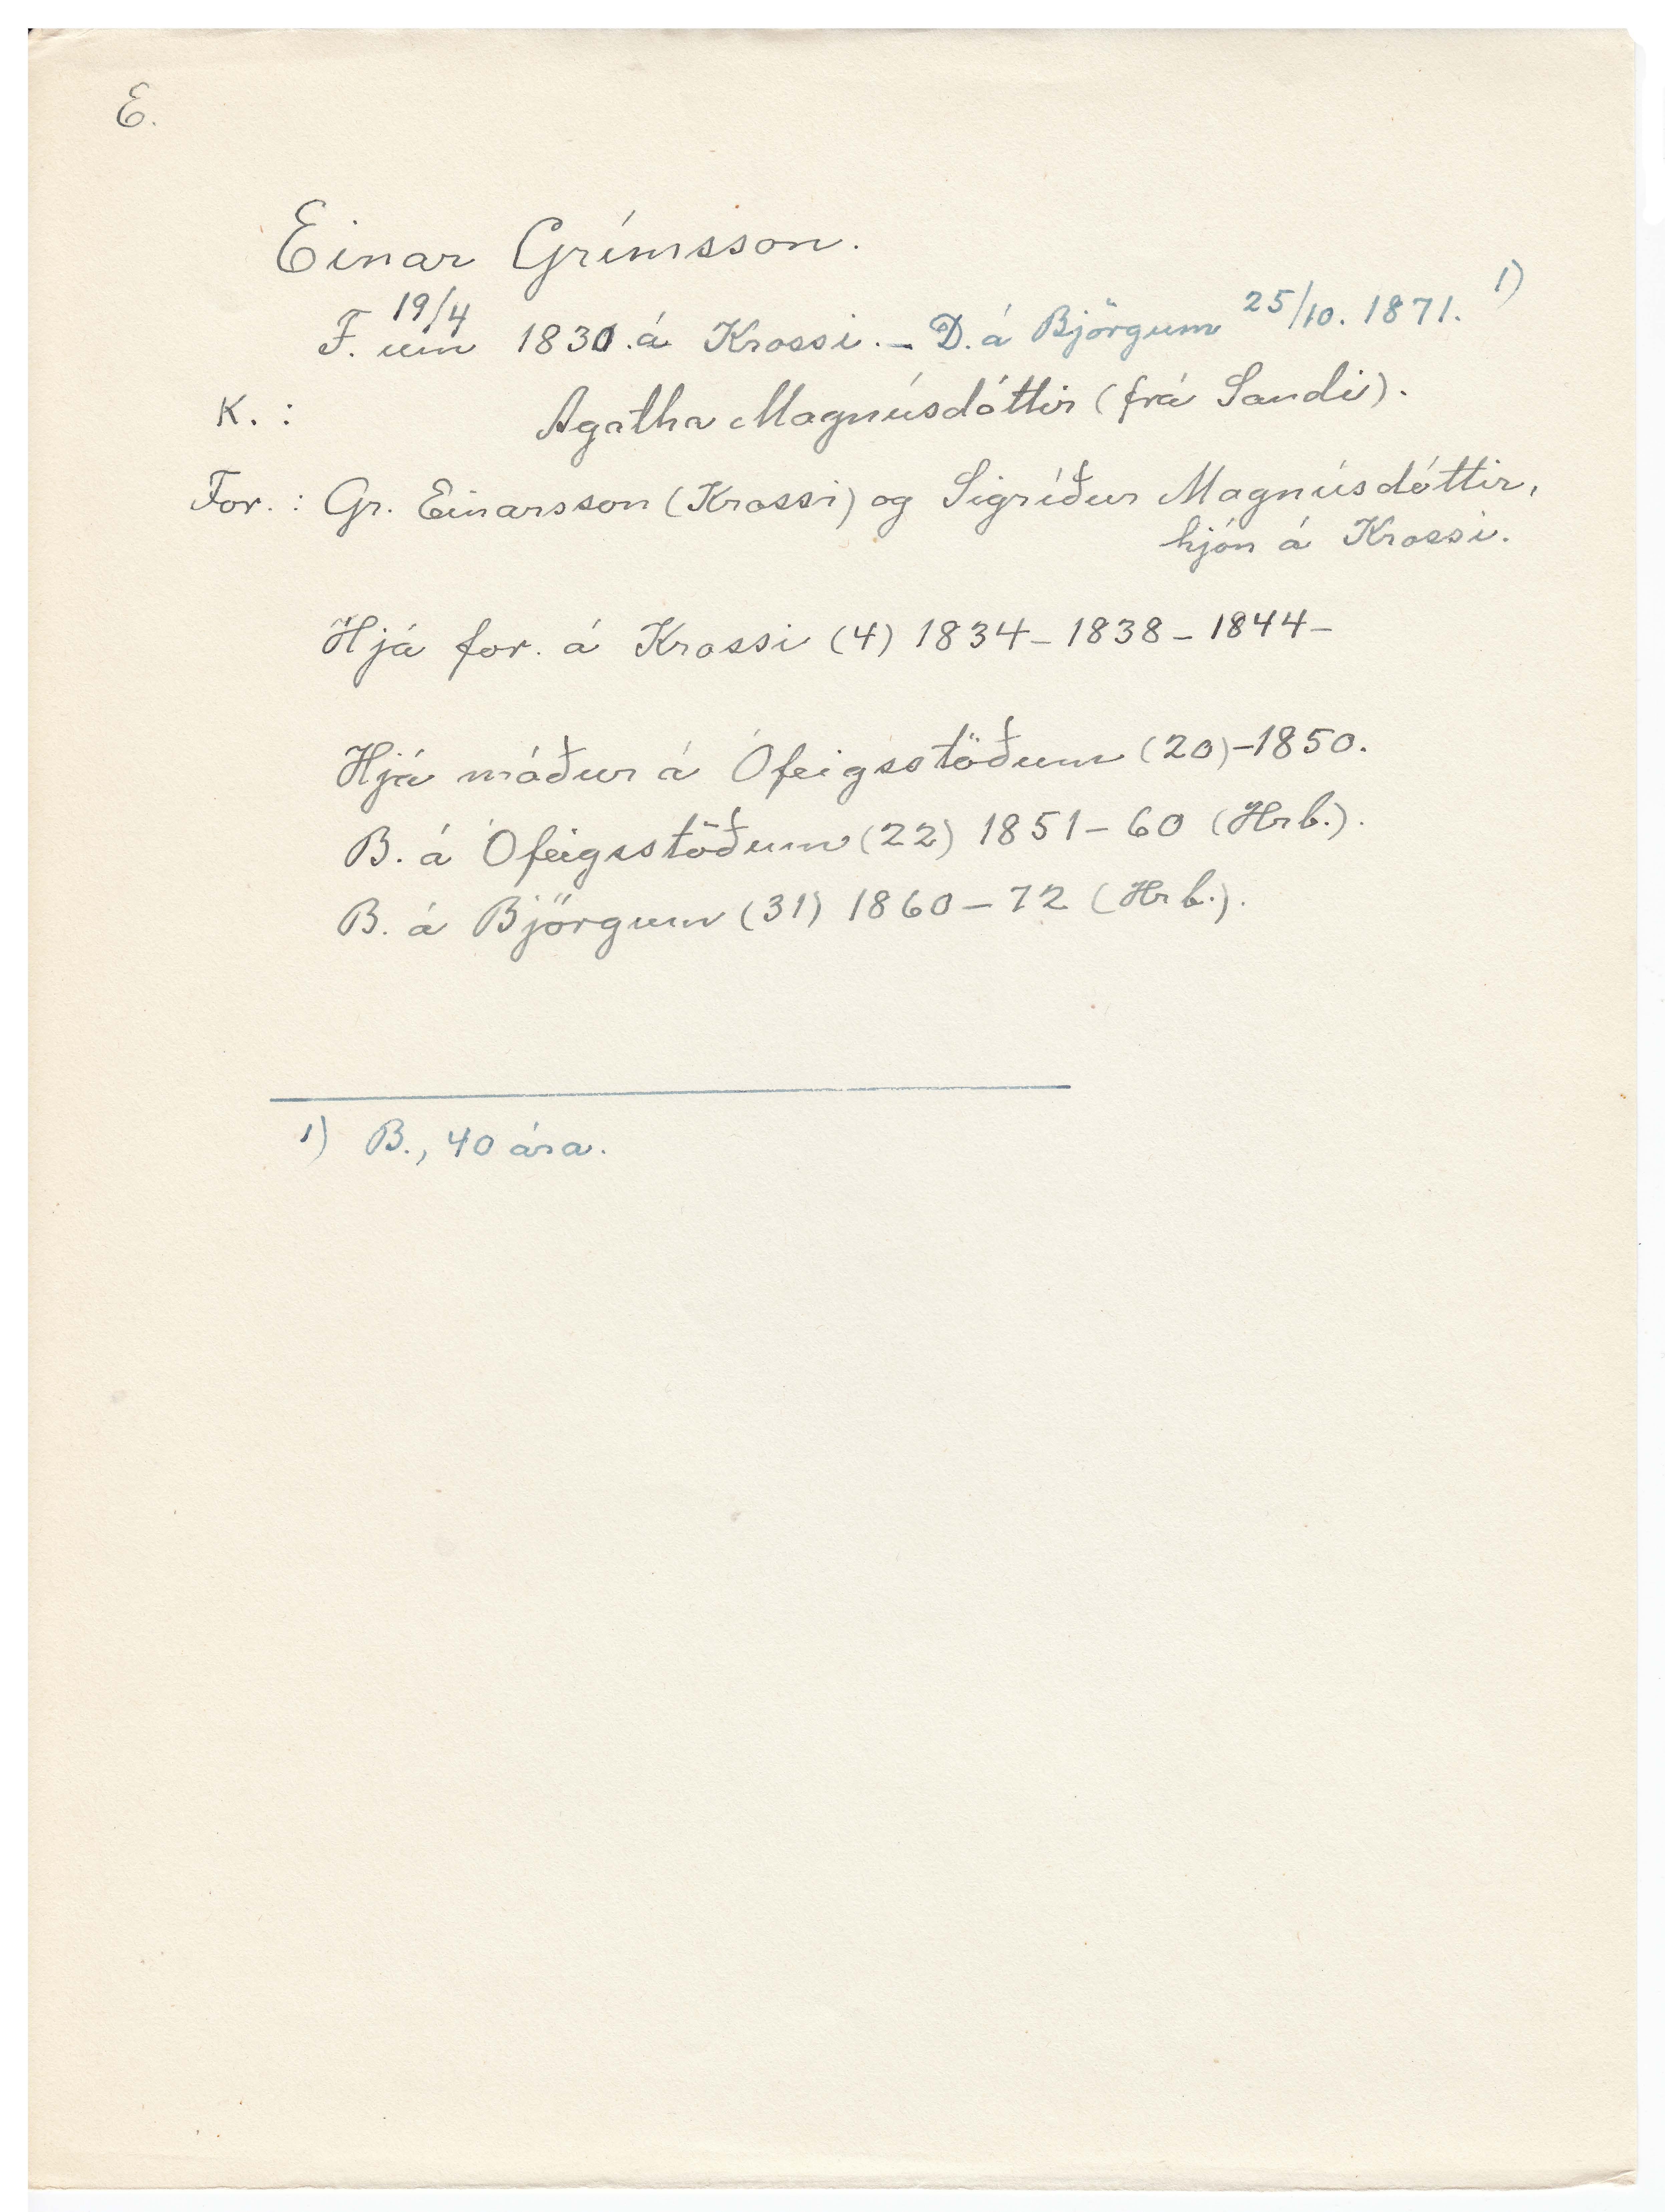 E.
Einar Grímsson.
F. um 19/4 1830. á Krossi. – D. á Björgum 25/10. 1871. 1)
K. : Agatha Magnúsdóttir (frá Sandi).
For. : Gr. Einarsson (Krossi) og Sigríður Magnúsdóttir,
hjón á Krossi.
Hjá for. á Krossi (4) 1834 – 1838 – 1844 –
Hjá móður á Ófeigsstöðum (20) – 1850.
B. á Ófeigsstöðum (22) 1851 – 60 (Hrb.).
B. á Björgum (31) 1860 – 72 (Hrb.).
1) B., 40 ára.